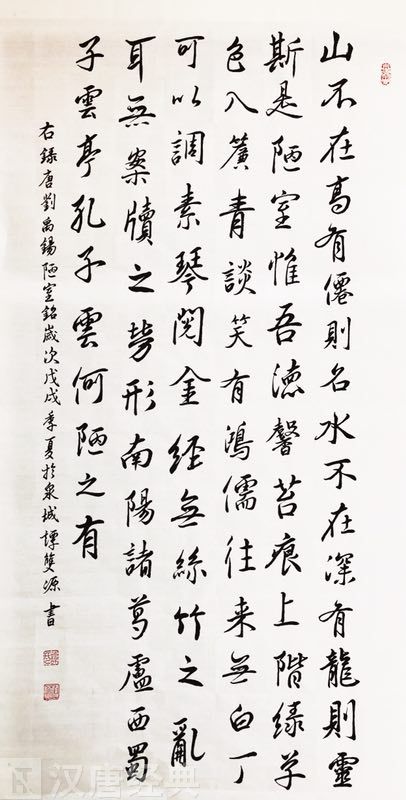 山不在高有僊則名水不在深有龍則靈
斯是陋室惟吾德馨苔痕上階緑草
色入簾青談笑有鴻儒往来無白丁
可以調素琴閱金經無絲竹之亂
耳無案牘之勞形南陽諸葛廬西蜀
子雲亭孔子雲何陋之有
右録唐劉禹錫陋室銘歲次戊戌季夏於泉城譚雙源書
汉唐经典